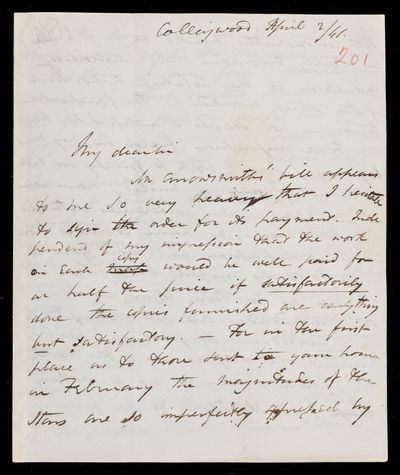 Collingwood April 2/41.
201
My dear Sir
Mr Arrowsmith's bill appears
to me so very heavy that I hesitate
to sign the order for its payment. Inde
pendent of my impression that the work
on Each copies would be well paid for
at half the price if satisfactorily
done the copies furnished are anything
but satisfactory. — For in the first
place as to those sent to your home
in February the magnitudes of the
Stars are so imperfectly expressed by